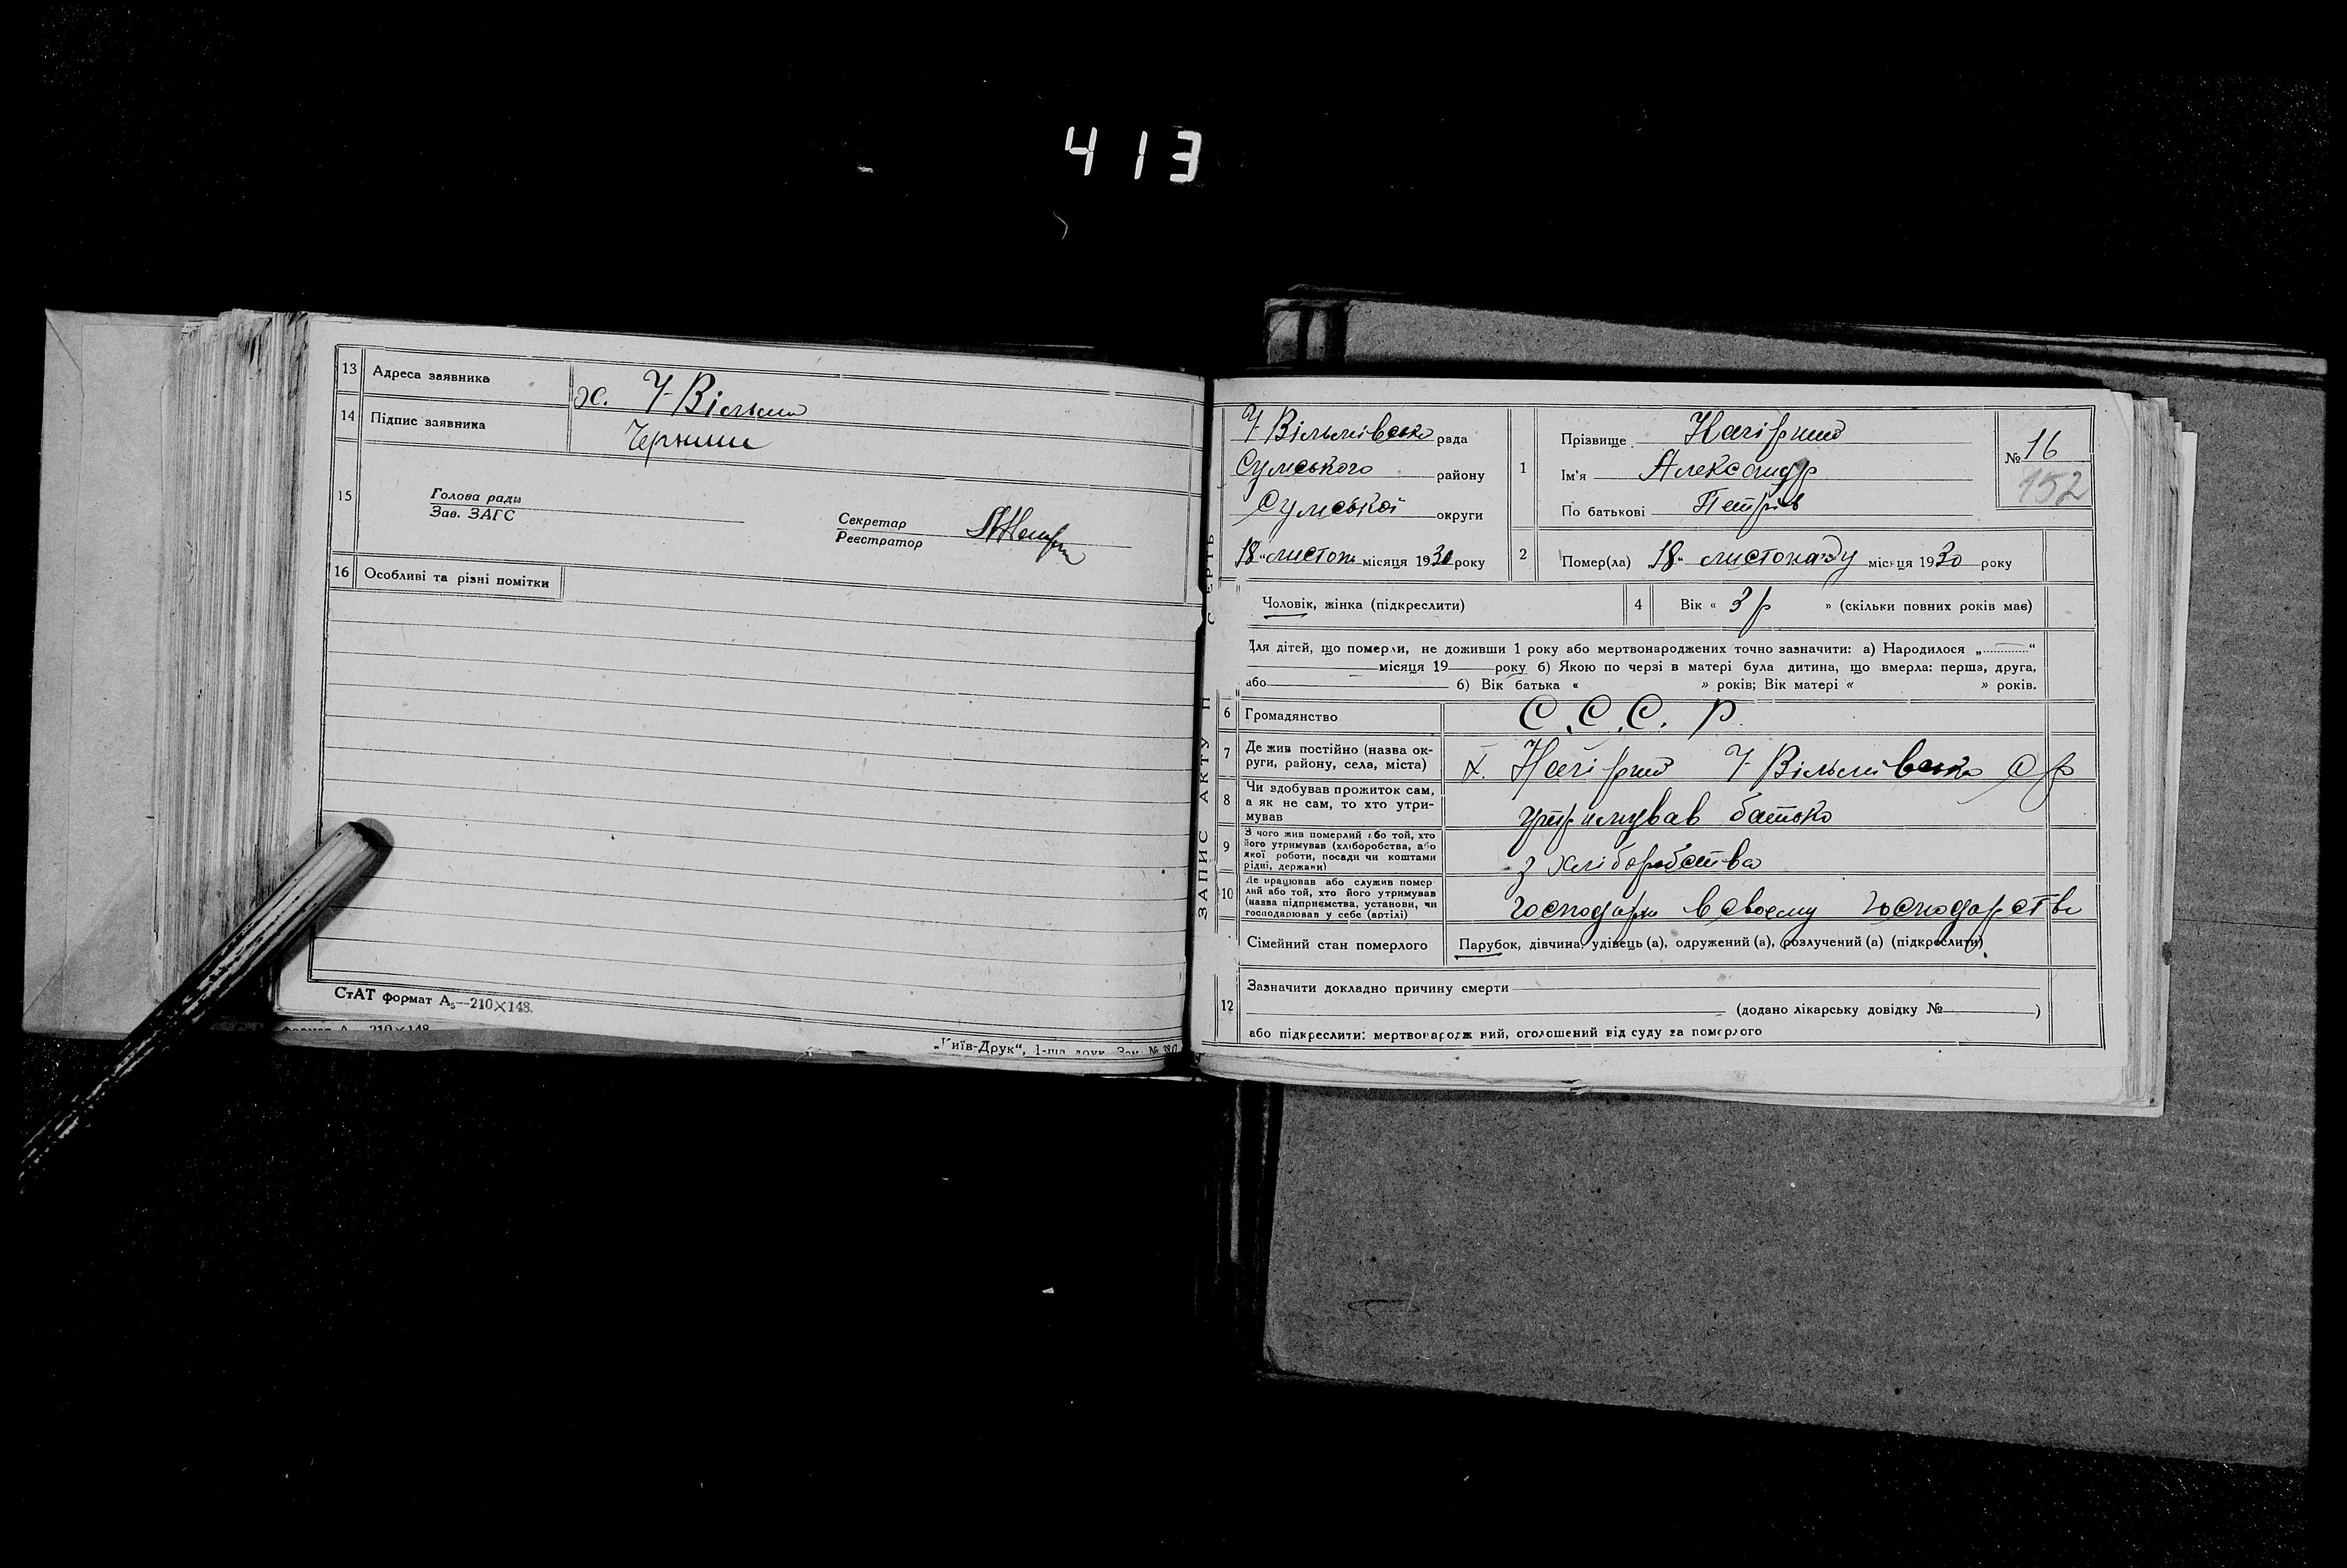 413
13 Адреса заявника х. У-Вільни
14 Підпис заявника Черниш
15 Голова ради
Зав. ЗАГС
Секретар
Реєстратор
16 Особливі та різні помітки
СтАТ формат А₅—210×148.
формат А 210×148
„Київ-Друк“, 1-ша друк. Зам. №
ЗАПИС АКТУ П СМЕРТЬ
У Вільнівська рада
Сумського району
Сумської округи
18 „листоп“ місяця 1930 року
1 Прізвище Нагірний
Ім'я Александр
По батькові Петрів
№ 16
152
2 Помер(ла) „18“ листопаду місяця 1930 року
Чоловік, жінка (підкреслити)
4 Вік « 3 р » (скільки повних років має)
Для дітей, що померли, не доживши 1 року або мертвонароджених точно зазначити: а) Народилося „..........“
місяця 19 року б) Якою по черзі в матері була дитина, що вмерла: перша, друга,
або б) Вік батька « » років; Вік матері « » років.
6 Громадянство С.С.С.Р.
7 Де жив постійно (назва округи, району, села, міста) х. Нагірний У Вільнівська с/р
8 Чи здобував прожиток сам, а як не сам, то хто утримував утримував батько
9 З чого жив померлий або той, хто його утримував (хліборобства, або якої роботи, посади чи коштами рідні, держави) з хліборобства
10 Де працював або служив померлий або той, хто його утримував (назва підприємства, установи, чи господарював у себе (артілі) господарю в своему господарстві
Сімейний стан померлого Парубок, дівчина, удівець (а), одружений (а), розлучений (а) (підкреслити)
12 Зазначити докладно причину смерти
(додано лікарську довідку № )
або підкреслити: мертвонароджений, оголошений від суду за померлого